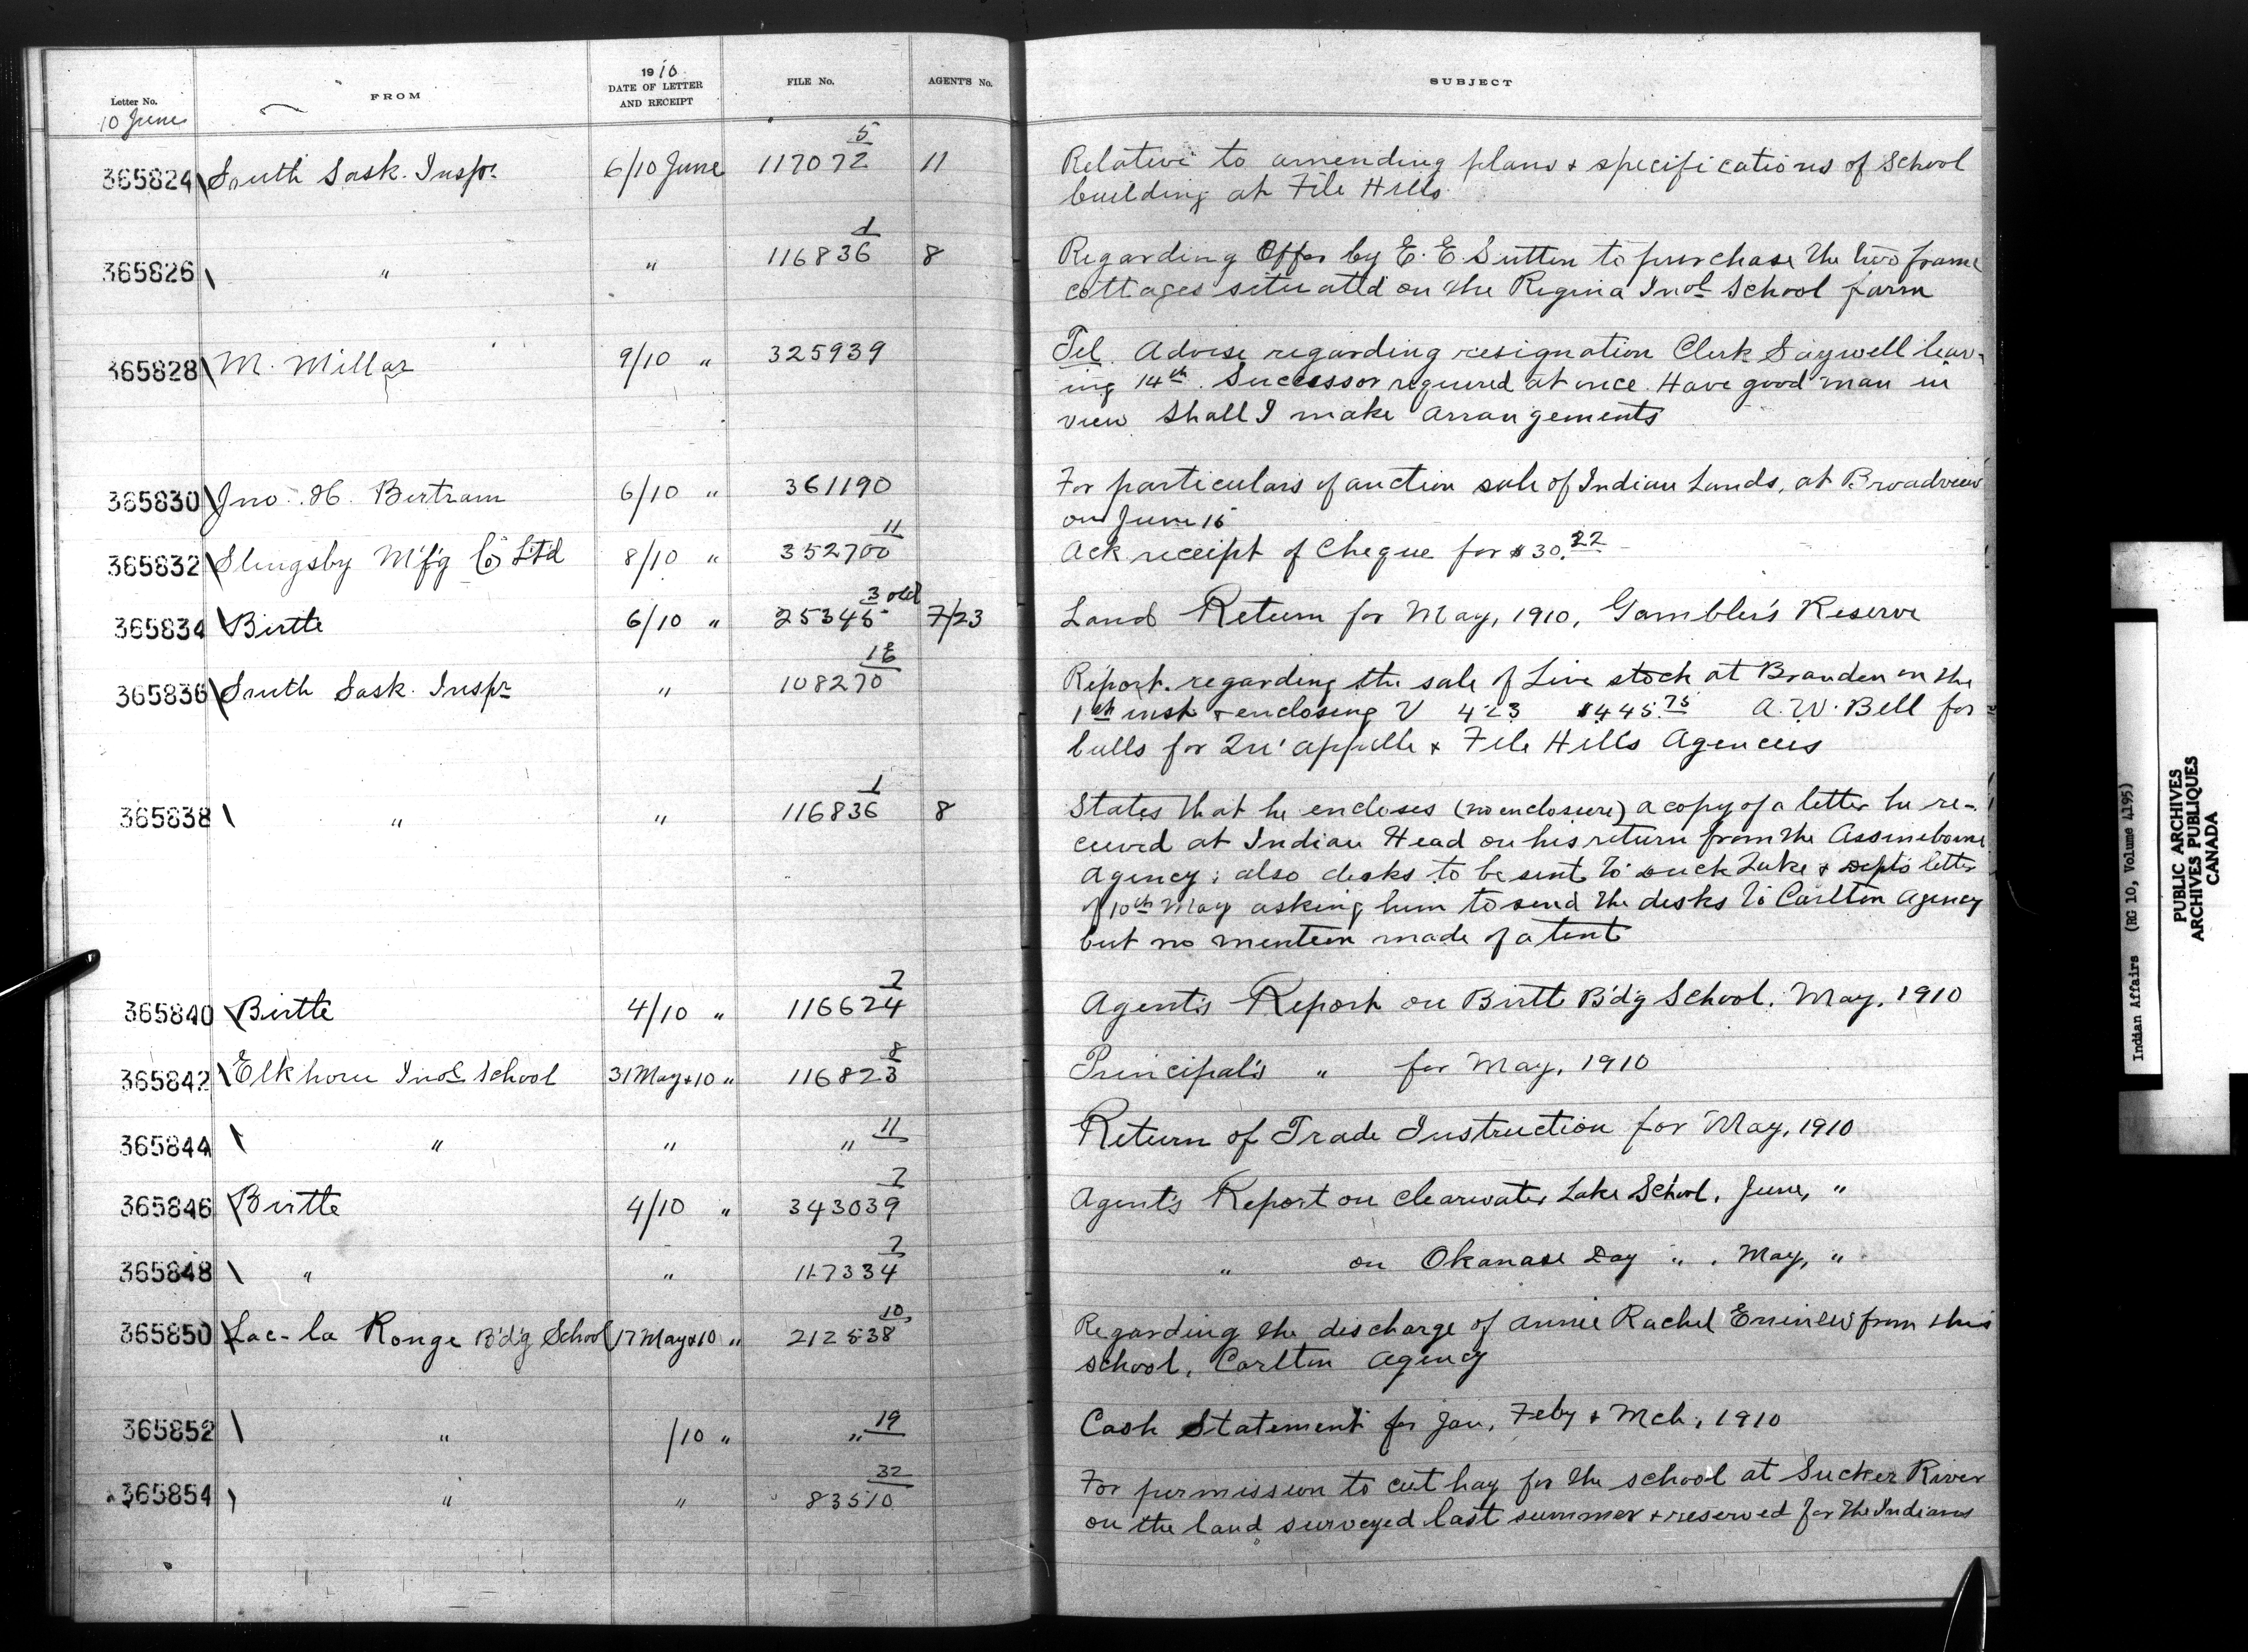 Letter No. FROM 1910 DATE OF LETTER AND RECEIPT FILE No. AGENT'S No. SUBJECT
10 June
365824 South Sask. Inspr 6/10 June 117072 5 11 Relative to amending plans & specifications of School
building at File Hills.
365826 " " 116836 1 8 Regarding Offer by E. E Sutton to purchase the two frame
cottages situated on the Regina Indl School farm
365828 M. Millar 9/10 " 325939 Tel. Advise regarding resignation Clerk Saywell leav-
ing 14th. Successor required at once. Have good man in
view Shall I make arrangements
365830 Jno. H. Bertram 6/10 " 361190 For particulars of auction sale of Indian Lands, at Broadview
on June 15
365832 Slingsby M'f'g Co L't'd 8/10 " 352700 11 Ack receipt of Cheque for $30.22
365834 Birtle 6/10 " 25345 3 old 7/23 Land Return for May, 1910, Gambler's Reserve
365836 South Sask. Inspr " 108270 Report regarding the sale of Live stock at Brandon on the
inst & enclosing V 423 $445.75 A. W. Bell for
bulls for Qu'appelle & File Hills Agencies
365838 " " 116836 1 8 States that he encloses (no enclosure) a copy of a letter he re-
ceived at Indian Head on his return from the Assiniboine
Agency; also desks to be sent to Duck Lake & Depts letter
of 10th May asking him to send the desks to Carlton Agency
but no mention made of a tent
365840 Birtle 4/10 " 116624 2 Agent's Report on Birtle B'd'g School. May, 1910
365842 Elkhorn Indl School 31 May & 10 " 116823 8 Principal's " for May, 1910
365844 " " " 11 Return of Trade Instruction for May, 1910
365846 Birtle 4/10 " 343039 2 Agent's Report on Clearwater Lake School, June, "
365848 " " 117334 2 " on Okanase Day " . May, "
365850 Lac-la Ronge B'd'g School 17 May & 10 " 212538 10 Regarding the discharge of Annie Rachel from this
school, Carlton Agency
365852 " /10 " " 19 Cash Statement for Jan, Feby & Mch, 1910
365854 " " 83510 32 For permission to cut hay for the school at Sucker River
on the land surveyed last summer & reserved for the Indians
Indian Affairs (RG 10, Volume 4195)
PUBLIC ARCHIVES
ARCHIVES PUBLIQUES
CANADA